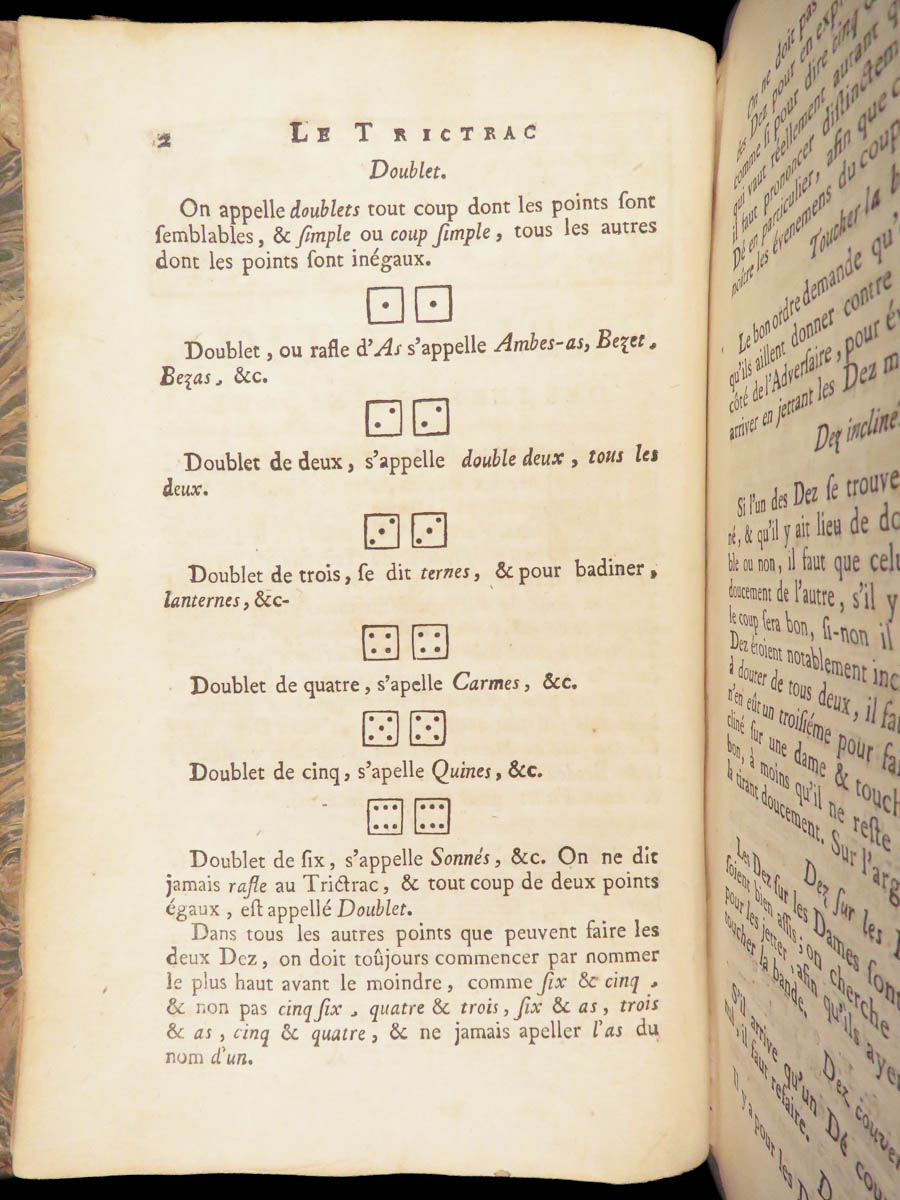 2 LE TRICTRAC
Doublet.
On appelle doublets tout coup dont les points ſont
ſemblables, & ſimple ou coup ſimple, tous les autres
dont les points ſont inégaux.
Doublet, ou rafle d'As s'appelle Ambes-as, Bezet,
Bezas, &c.
Doublet de deux, s'appelle double deux, tous les
deux.
Doublet de trois, ſe dit ternes, & pour badiner,
lanternes, &c-
Doublet de quatre, s'apelle Carmes, &c.
Doublet de cinq, s'apelle Quines, &c.
Doublet de ſix, s'appelle Sonnés, &c. On ne dit
jamais rafle au Trictrac, & tout coup de deux points
égaux, eſt appellé Doublet.
Dans tous les autres points que peuvent faire les
deux Dez, on doit toûjours commencer par nommer
le plus haut avant le moindre, comme ſix & cinq,
& non pas cinq ſix, quatre & trois, ſix & as, trois
& as, cinq & quatre, & ne jamais apeller l'as du
nom d'un.
On ne doit pas
des Dez pour en exp
comme ſi pour dire cinq
qui vaut réellement autant q
il faut prononcer diſtinctem
Dé en particulier, afin que c
noître les évenemens du coup
Toucher la b
Le bon ordre demande qu'
qu'ils aillent donner contre
côté de l'Adverſaire, pour év
arriver en jettant les Dez m
Dez incliné
Si l'un des Dez ſe trouve
né, & qu'il y ait lieu de do
ble ou non, il faut que celu
doucement de l'autre, s'il y
le coup ſera bon, ſi-non il
Dez étoient notablement inc
à douter de tous deux, il fa
n'en eût un troiſiéme pour fa
cliné ſur une dame & touch
bon, à moins qu'il ne reſte
la tirant doucement. Sur l'arg
Dez ſur les
Les Dez ſur les Dames ſont
ſoient bien aſſis; on cherche
pour les jetter, afin qu'ils aye
toucher la bande.
Dez couve
S'il arrive qu'un Dé cou
nul, il faut refaire.
Il y a pour les D